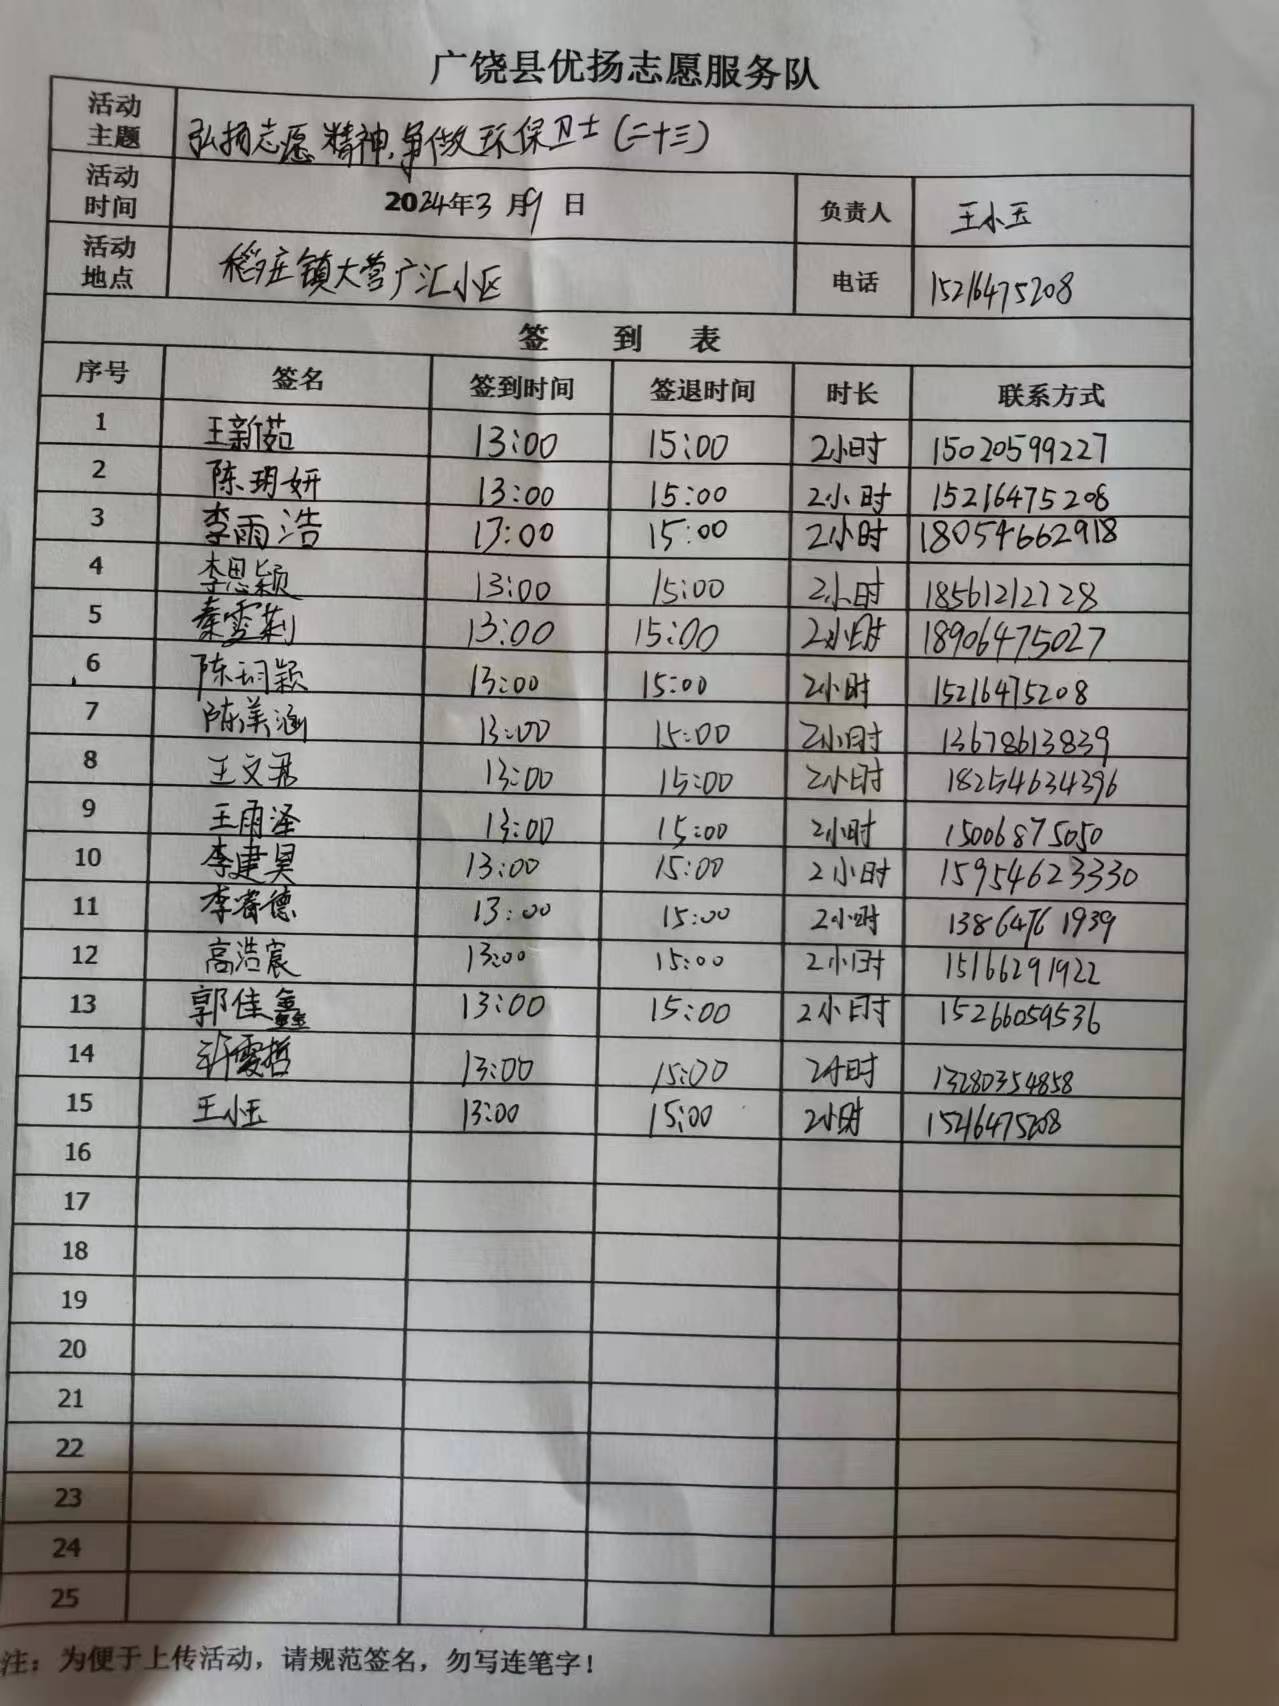 广饶县优扬志愿服务队
活动主题 弘扬志愿精神,争做环保卫士(二十三)
活动时间 2024年3月9日 负责人 王小玉
活动地点 稻庄镇大营广汇小区 电话 15216475208
签 到 表
序号 签名 签到时间 签退时间 时长 联系方式
1 王新茹 13:00 15:00 2小时 15020599227
2 陈玥妍 13:00 15:00 2小时 15216475208
3 李雨浩 13:00 15:00 2小时 18054662918
4 李思颖 13:00 15:00 2小时 18561212728
5 秦雯莉 13:00 15:00 2小时 18906475027
6 陈玥颖 13:00 15:00 2小时 15216475208
7 陈美涵 13:00 15:00 2小时 13678613839
8 王文君 13:00 15:00 2小时 18254634396
9 王雨泽 13:00 15:00 2小时 15006875050
10 李建昊 13:00 15:00 2小时 15954623330
11 李睿德 13:00 15:00 2小时 13864761939
12 高浩宸 13:00 15:00 2小时 15166291922
13 郭佳鑫 13:00 15:00 2小时 15266059536
14 许雯哲 13:00 15:00 2小时 13280354858
15 王小玉 13:00 15:00 2小时 15216475208
16
17
18
19
20
21
22
23
24
25
注：为便于上传活动，请规范签名，勿写连笔字！